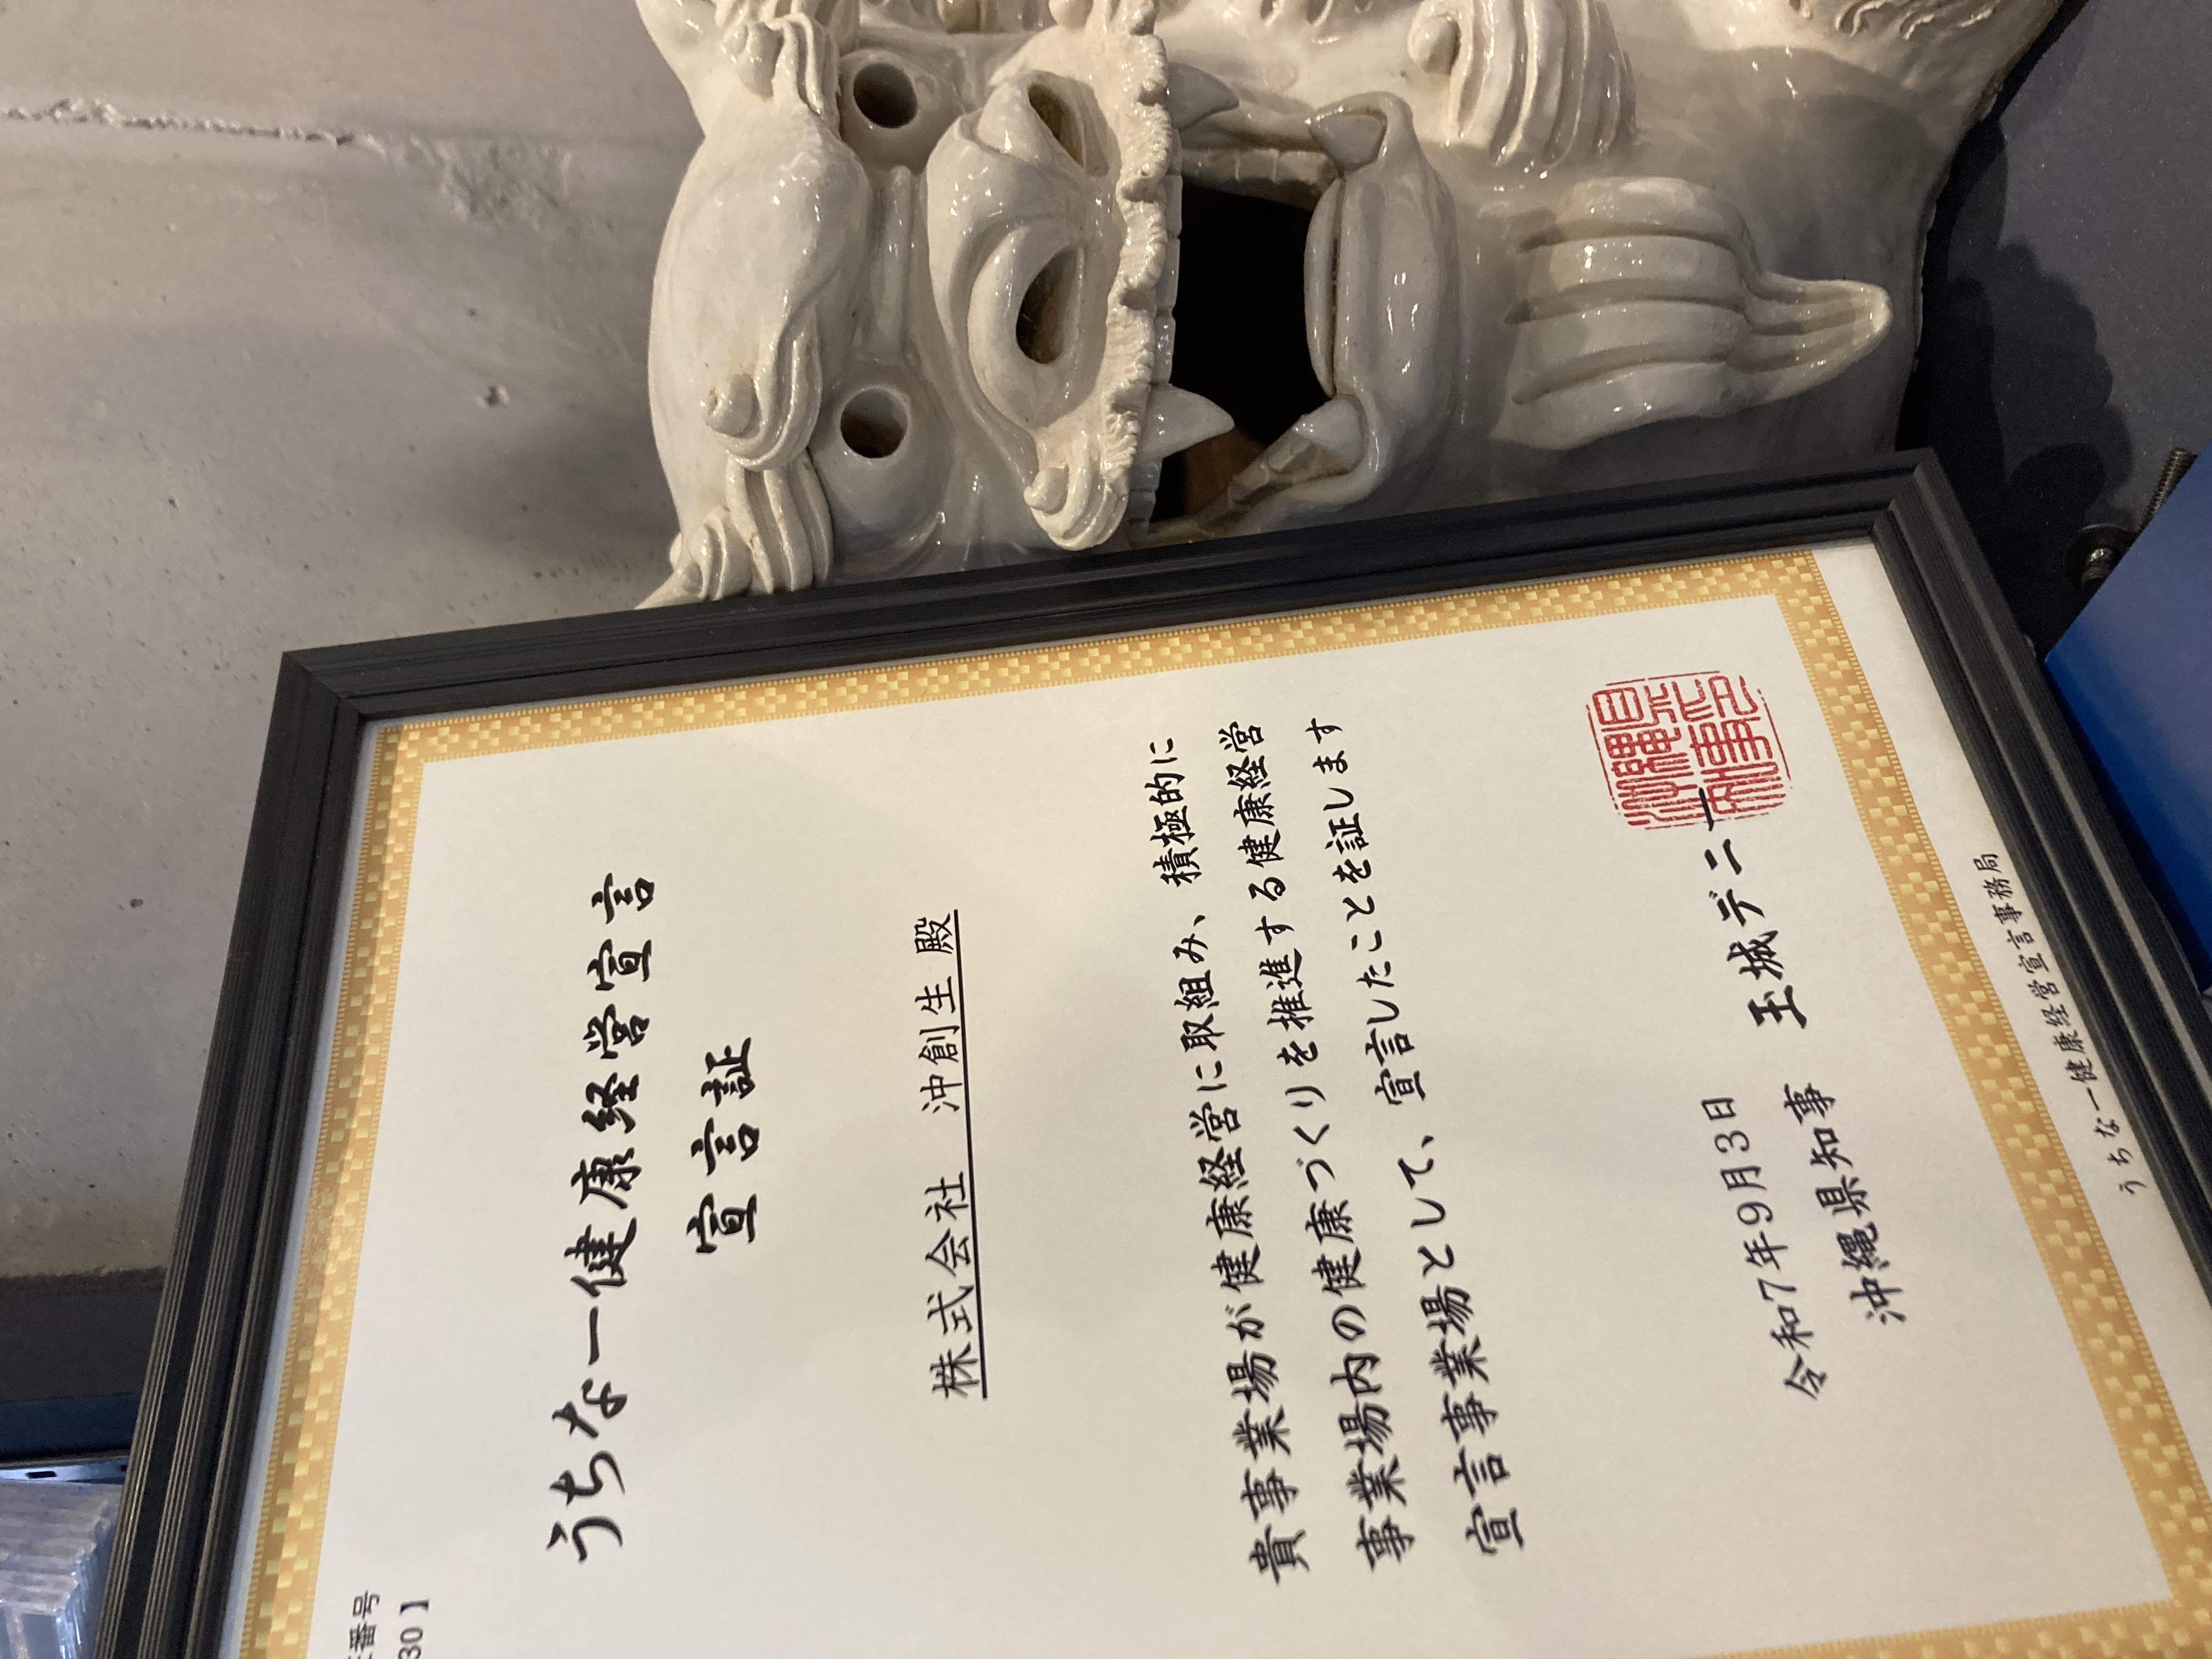 番号
30】
うちなー健康経営宣言
宣言証
株式会社 沖創生 殿
貴事業場が健康経営に取組み、積極的に
事業場内の健康づくりを推進する健康経営
宣言事業場として、宣言したことを証します
令和7年9月3日
沖縄県知事 玉城デニー
沖縄県知事印
うちなー健康経営宣言事務局